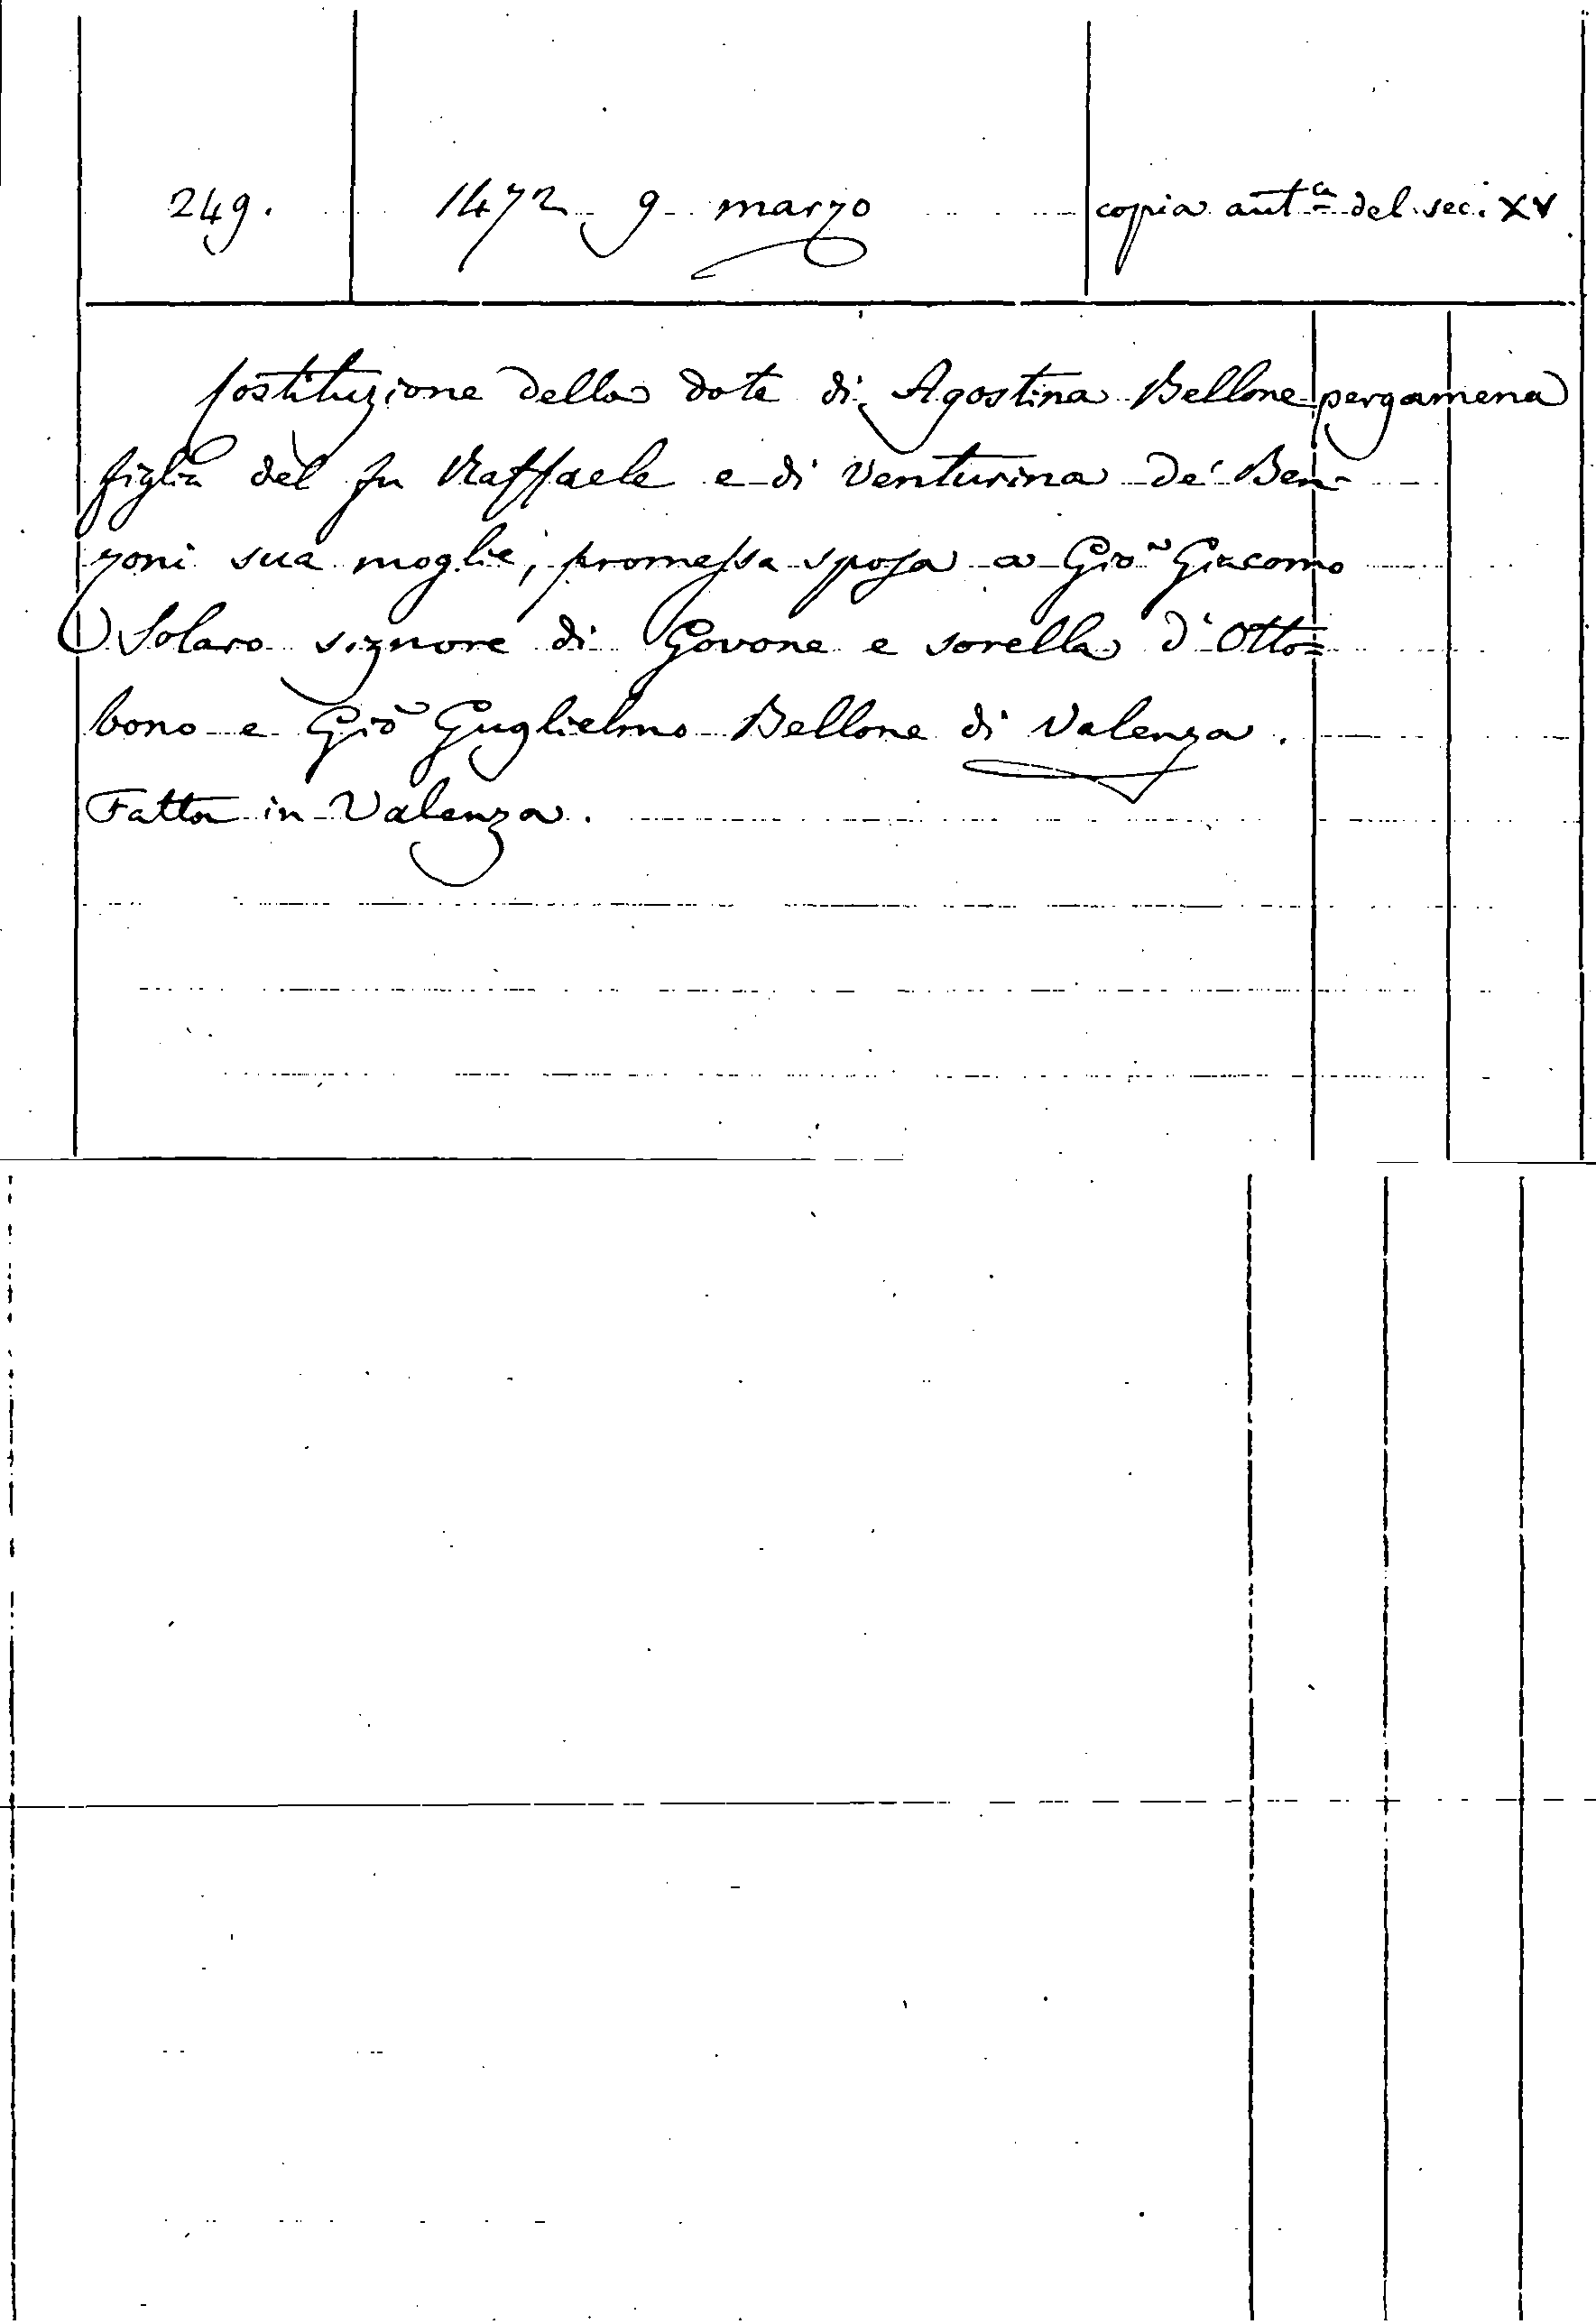 249. 1472 9 marzo copia aut.ca del sec. XV
Costituzione della dote di Agostina Bellone pergamena
figlia del fu Raffaele e di Venturina de' Ben-
zoni sua moglie, promessa sposa a Gio: Giacomo
Solaro signore di Govone e sorella d'Otto=
bono e Gio Guglielmo Bellone di Valenza.
Fatta in Valenza.